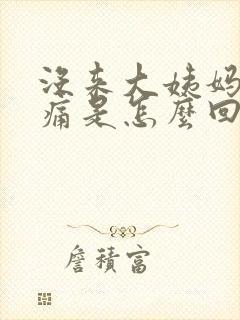 没来大姨妈
痛是怎麼回
詹積富